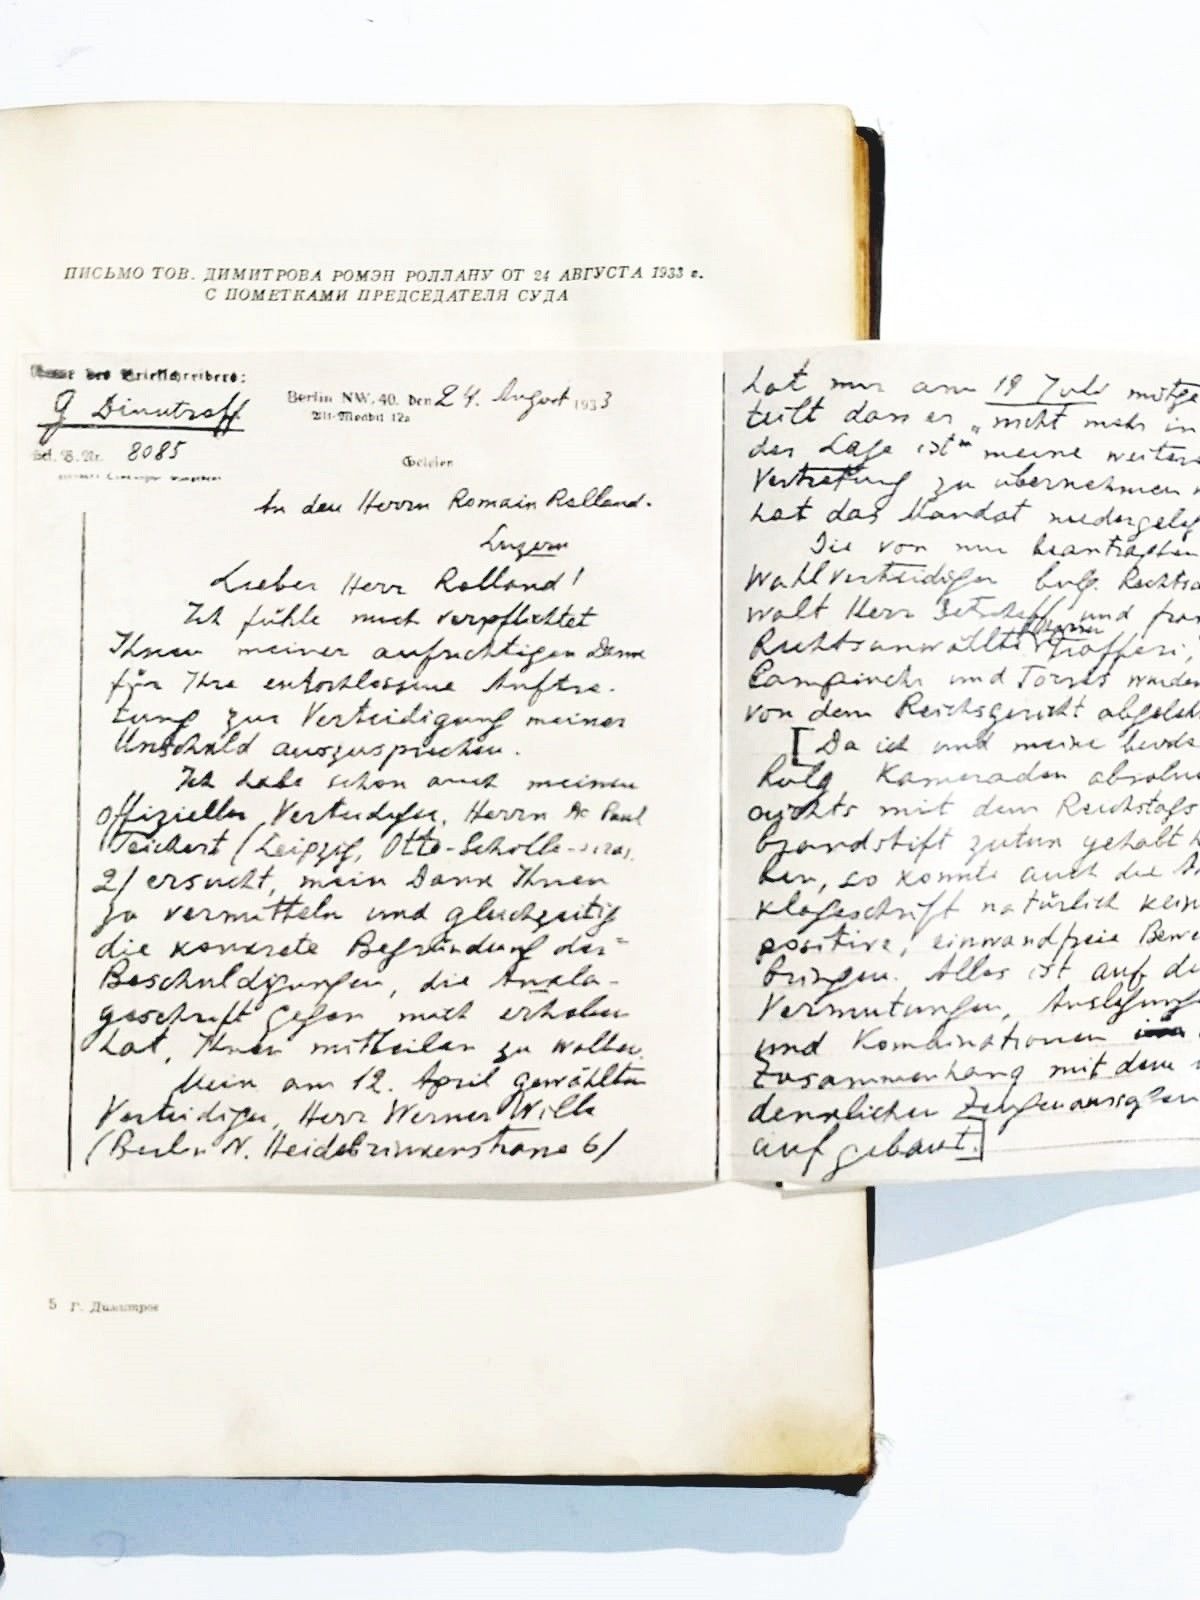 ПИСЬМО ТОВ. ДИМИТРОВА РОМЭН РОЛЛАНУ ОТ 24 АВГУСТА 1933 г.
С ПОМЕТКАМИ ПРЕДСЕДАТЕЛЯ СУДА
des Briefschreibers:
G Dimitroff
8085
Berlin NW. 40. den 24. August 1933
Alt-Moabit 12a
Gelesen
An den Herrn Romain Rolland.
Luzern
Lieber Herr Rolland!
Ich fühle mich verpflichtet
Ihnen meiner aufrichtigen Dank
für Ihre entschlossene Auftre-
tung zur Verteidigung meiner
Unschuld auszusprechen.
Ich habe schon auch meinen
offizieller Verteidiger, Herrn Dr Paul
Teichert (Leipzig, Otto-Schille-stras.
2) ersucht, mein Dank Ihnen
zu vermitteln und gleichzeitig
die konkrete Begründung der
Beschuldigungen, die Ankla-
geschrift gegen mich erhoben
hat, Ihnen mitteilen zu wollen.
Mein am 12. April gewählten
Verteidiger, Herr Werner Wille
(Berlin N.
hat mir am 18 Juli mitge
teilt dass er „nicht mehr in
der Lage ist" meine weitere
Vertretung zu übernehmen
hat das Mandat niedergeleg
Die von mir beantragten
Wahlverteidiger bulg. Rechtsa
walt Herr und fran
Rechtsanwälte Herren Giafferi,
Campinchi und Torres wurden
von dem Reichsgericht abgeleh
[Da ich und meine beide
bulg Kameraden absolut
nichts mit dem Reichstags
brandstift zutun gehabt h
ben, so konnte auch die An
klageschrift natürlich kein
positive, einwandfreie Bewe
bringen. Alles ist auf de
Vermutungen, Auslegunge
und Kombinationen
Zusammenhang mit dem
denklichen Zeugenaussagen
aufgebaut.]
5 Г. Димитров